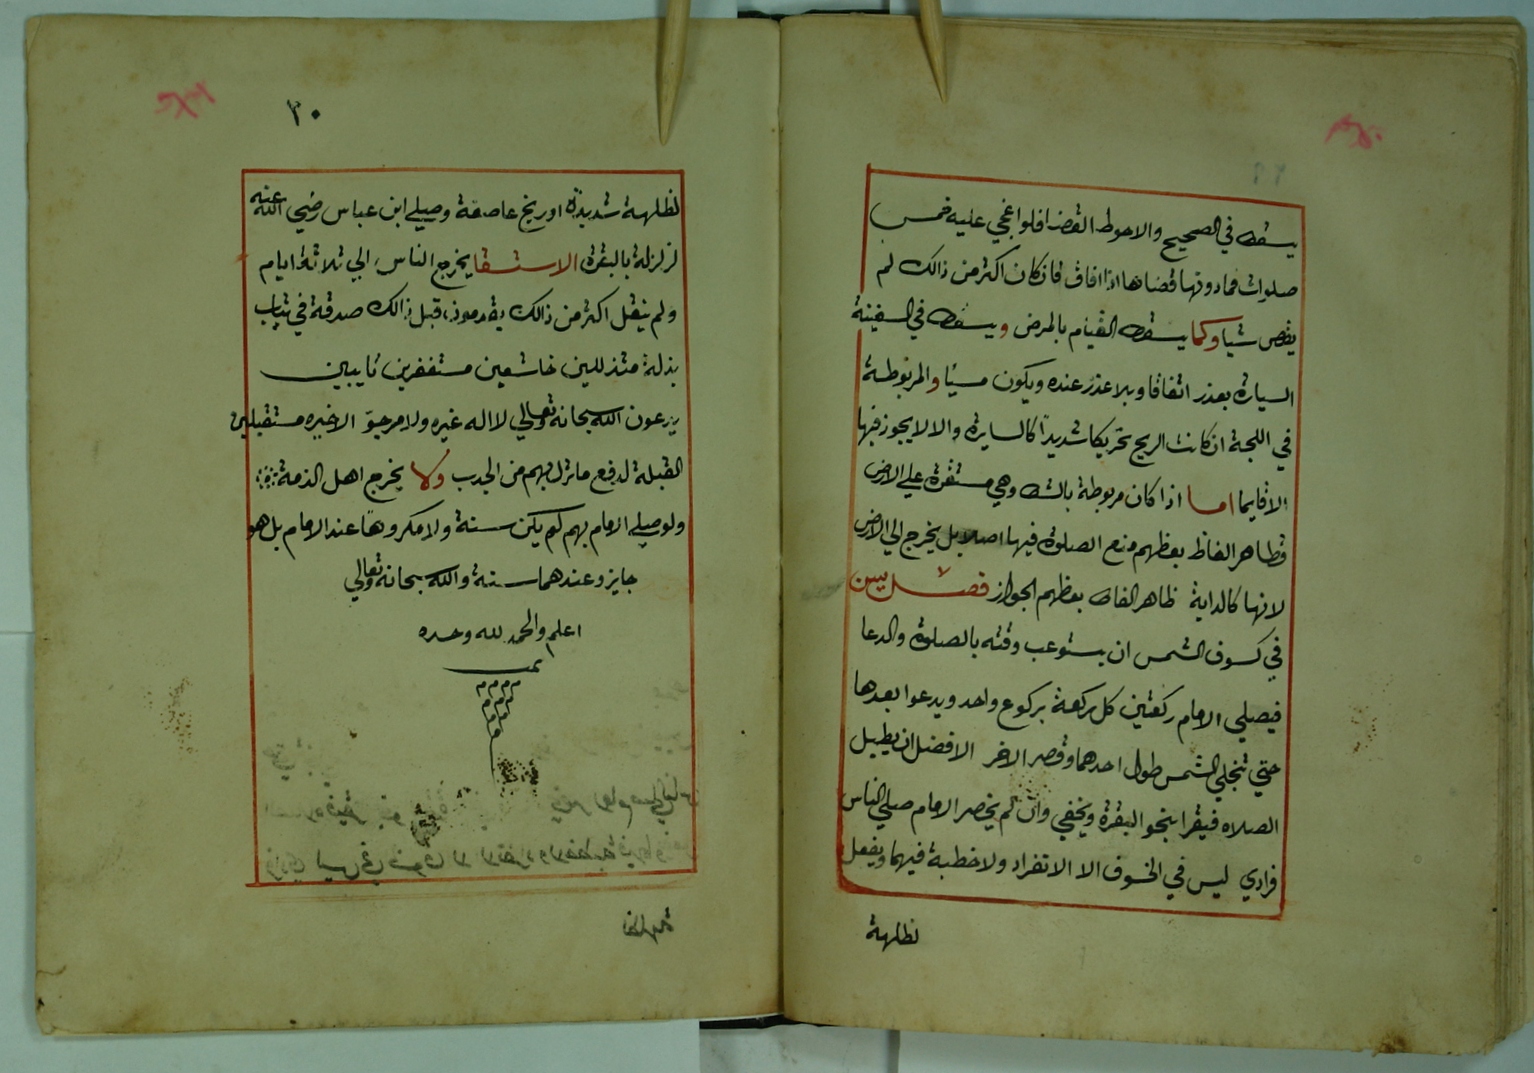 يسقط في الصحيح والاحوط القضا فلوا غمي عليه خمس
صلوات فما دونها قضاها اذا افاق فان كان اكثر من ذالك لم
يقض شيا وكما يسقط القيام بالمرض ويسقط في السفينة
السيارة بعذر اتفاقا وبلا عذر عنده ويكون مسيا والمربوطة
في اللجة ان كانت الريح تحريكا شديدا كالسايرة والا لا يجوز فيها
الا قايما اما اذا كان مربوطة بالشط وهي مستقرة علي الارض
فظاهر الفاظ بعظهم منع الصلوة فيها اصلا بل يخرج الي الارض
لانها كالداية ظاهر الفاظ بعظهم الجواز فصل يسن
في كسوف الشمس ان يستوعب وقته بالصلوة والدعا
فيصلي الامام ركعتين كل ركعة بركوع واحد ويدعوا بعدها
حتي تنجلي الشمس طول احدهما وقصر الاخر الافضل ان يطيل
الصلاه فيقرا بنحو البقرة ويخفي وان لم يحضر الامام صلي الناس
فرادي ليس في الخسوف الا الانفراد ولا خطبة فيهما ويفعل
لظلهة
٣٠
لظلهة شديدة او ريح عاصفة وصلي ابن عباس رضي الله عنه
لزلزلة بالبقرة الاستسقا يخرج الناس الي ثلاثة ايام
ولم ينقل اكثر من ذالك يقدموذ، قبل ذالك صدقة في ثياب
بذلة متذللين خاشعين مستغفرين تايبين
يدعون الله سبحانه وتعالي لا اله غيره ولا مرجو الا خيره مستقبلين
القبلة لدفع ما نزل بهم من الجدب ولا يخرج اهل الذمة
ولو صلي الامام بهم لم يكن سنة ولا مكروها عند الامام بل هو
جايز وعندهما سنة والله سبحانه وتعالي
اعلم والحمد لله وحده
تمت